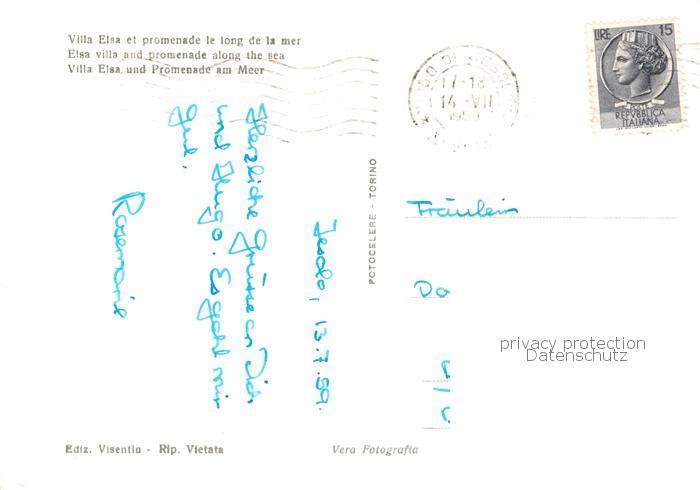 Villa Elsa et promenade le long de la mer
Elsa villa and promenade along the sea
Villa Elsa und Promenade am Meer
LIRE 15
POSTE
REPVBBLICA
ITALIANA
17-18
14 -VII
1959
Jesolo, 13.7.59.
Herzliche Grüsse an Dich
und Hugo. Es geht mir
gut.
Rosemarie
FOTOCELERE - TORINO
Fräulein
Do
privacy protection
Datenschutz
Ediz. Visentin - Rip. Vietata
Vera Fotografia